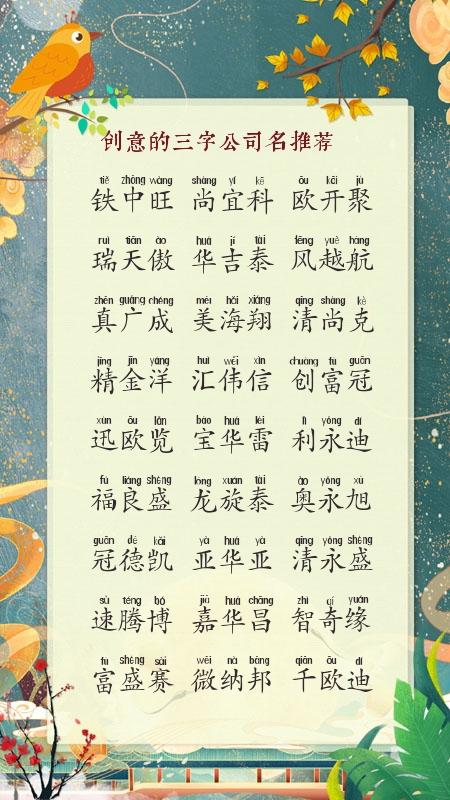 创意的三字公司名推荐
tiě zhōng wàng shàng yí kē ōu kāi jù
铁中旺 尚宜科 欧开聚
ruì tiān ào huá jí tài fēng yuè háng
瑞天傲 华吉泰 风越航
zhēn guǎng chéng měi hǎi xiáng qīng shàng kè
真广成 美海翔 清尚克
jīng jīn yáng huì wěi xìn chuàng fù guān
精金洋 汇伟信 创富冠
xùn ōu lǎn bǎo huá léi lì yǒng dí
迅欧览 宝华雷 利永迪
fú liáng shèng lóng xuán tài ào yǒng xù
福良盛 龙旋泰 奥永旭
guān dé kǎi yà huá yà qīng yǒng shèng
冠德凯 亚华亚 清永盛
sù téng bó jiā huá chāng zhì qí yuán
速腾博 嘉华昌 智奇缘
fù shèng sài wēi nà bāng qiān ōu dí
富盛赛 微纳邦 千欧迪